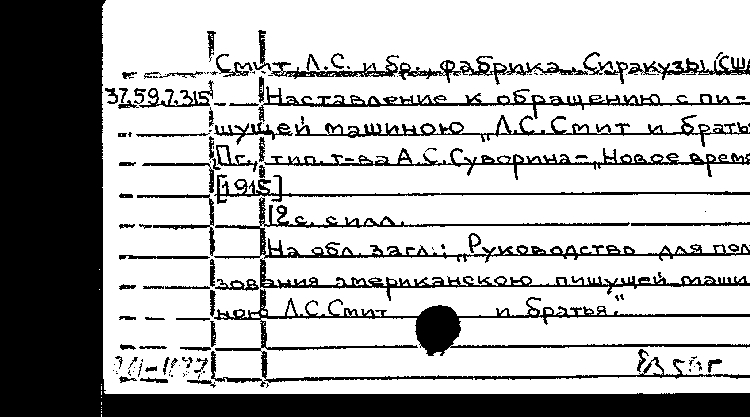 Смит, Л.С. и бр., фабрика. Сиракузы (США
37.59.7.315 Наставление к обращению с пи-
шущей машиною „Л.С. Смит и братья
Пг., тип. т-ва А.С. Суворина-„Новое время
[1915]
12 с. с илл.
На обл. загл.: „Руководство для поль
зования американскою пишущей маши
ною Л.С. Смит и братья."